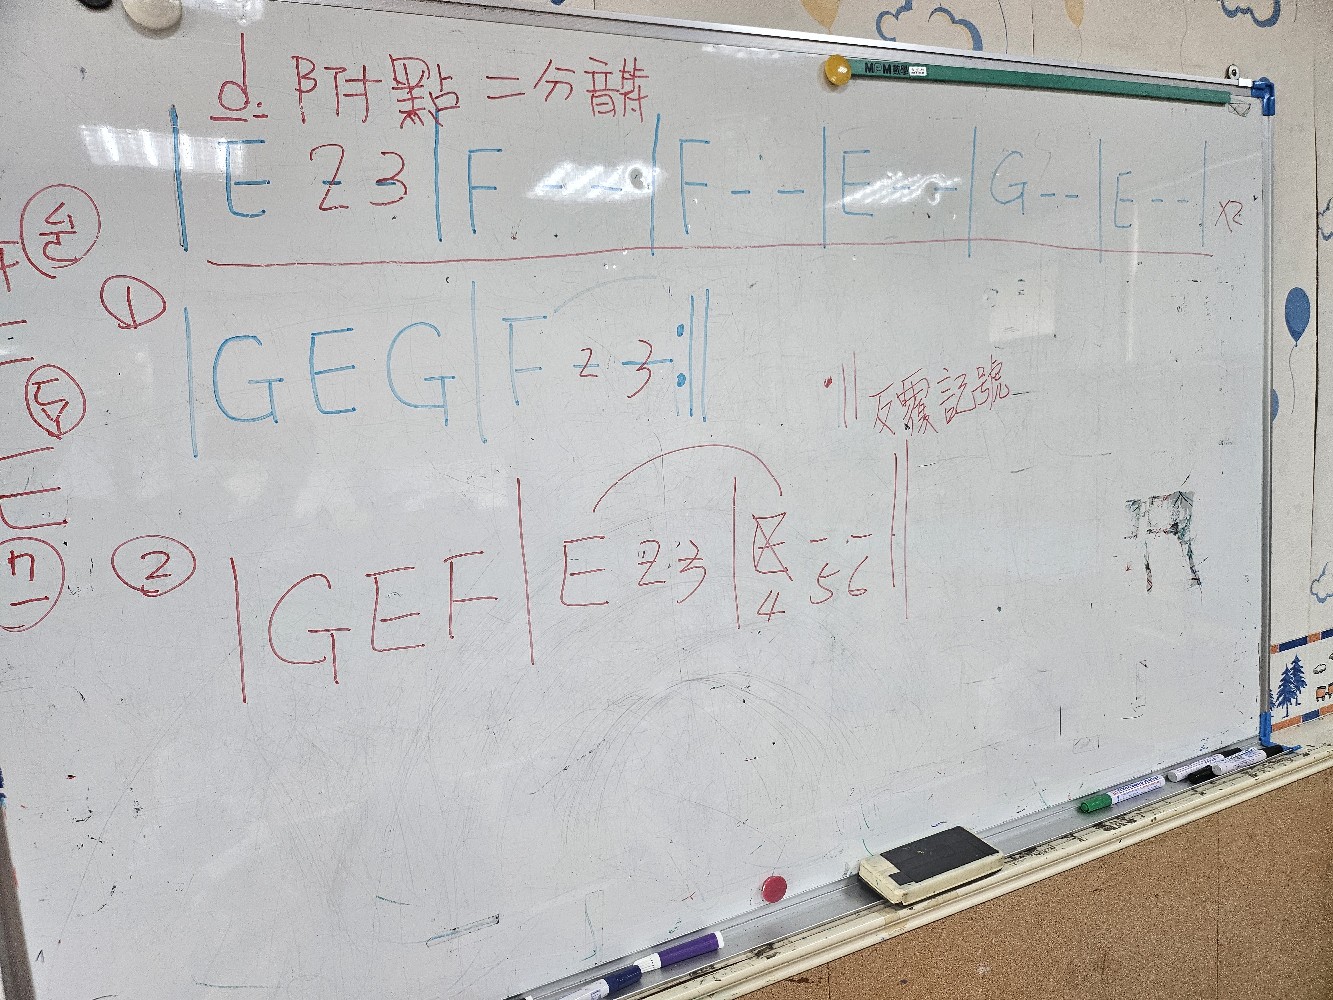 d. 附點二分音符
| E 2 3 | F - - | F - - | E - - | G - - | E - - | X2
① | G E G | F 2 3 :||
:|| 反覆記號
② | G E F | E 2 3 | E - - ||
4 5 6